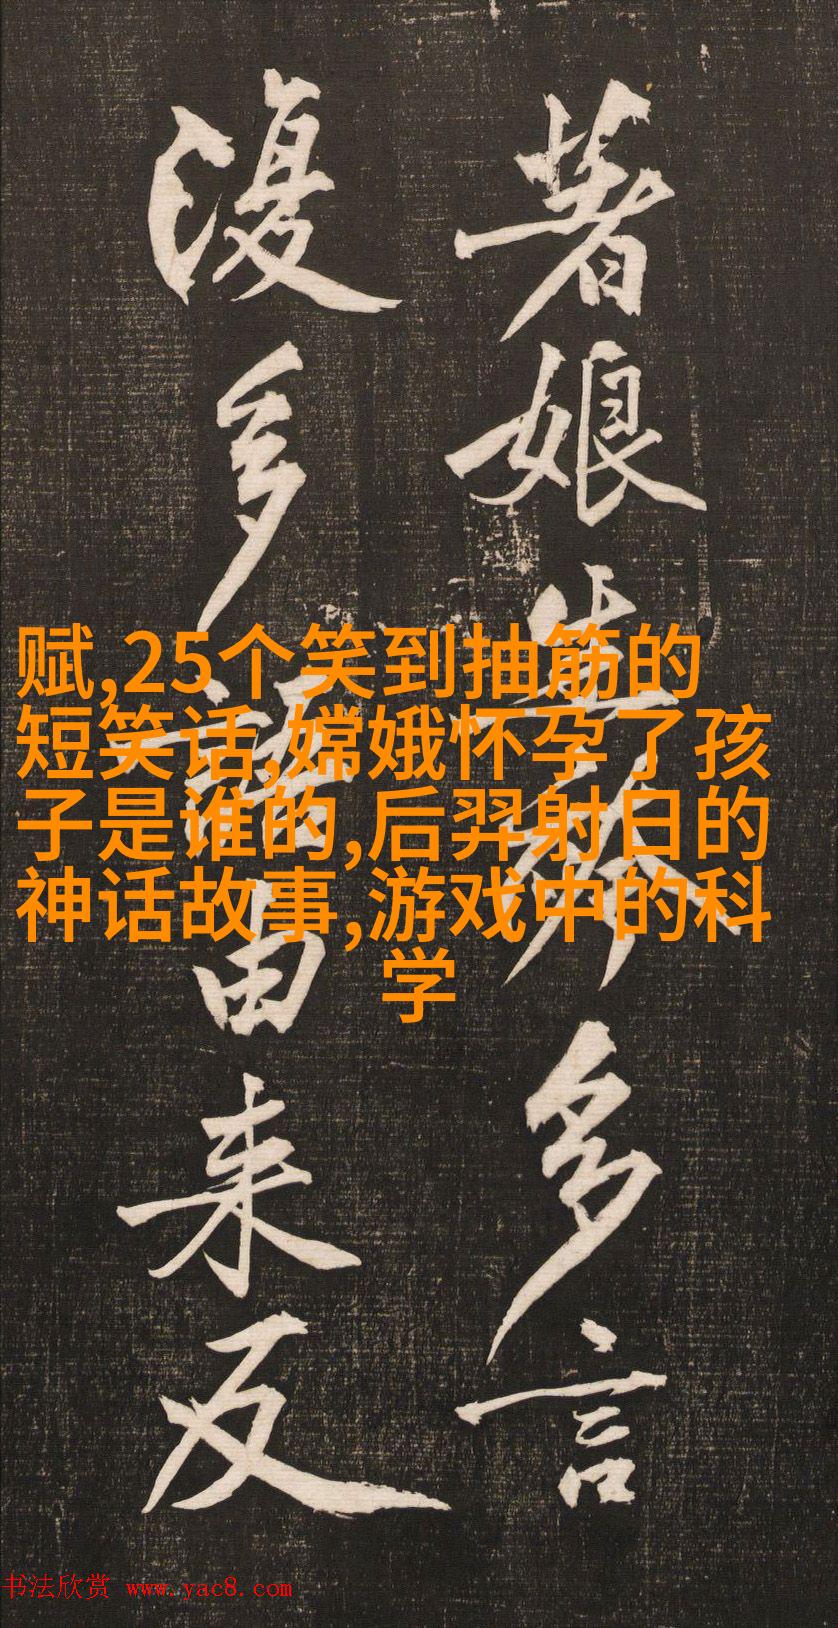 著娘生多言
復多語由来反
赋,25个笑到抽筋的
短笑话,嫦娥怀孕了孩
子是谁的,后羿射日的
神话故事,游戏中的科
学
书法欣赏 www.yac8.com